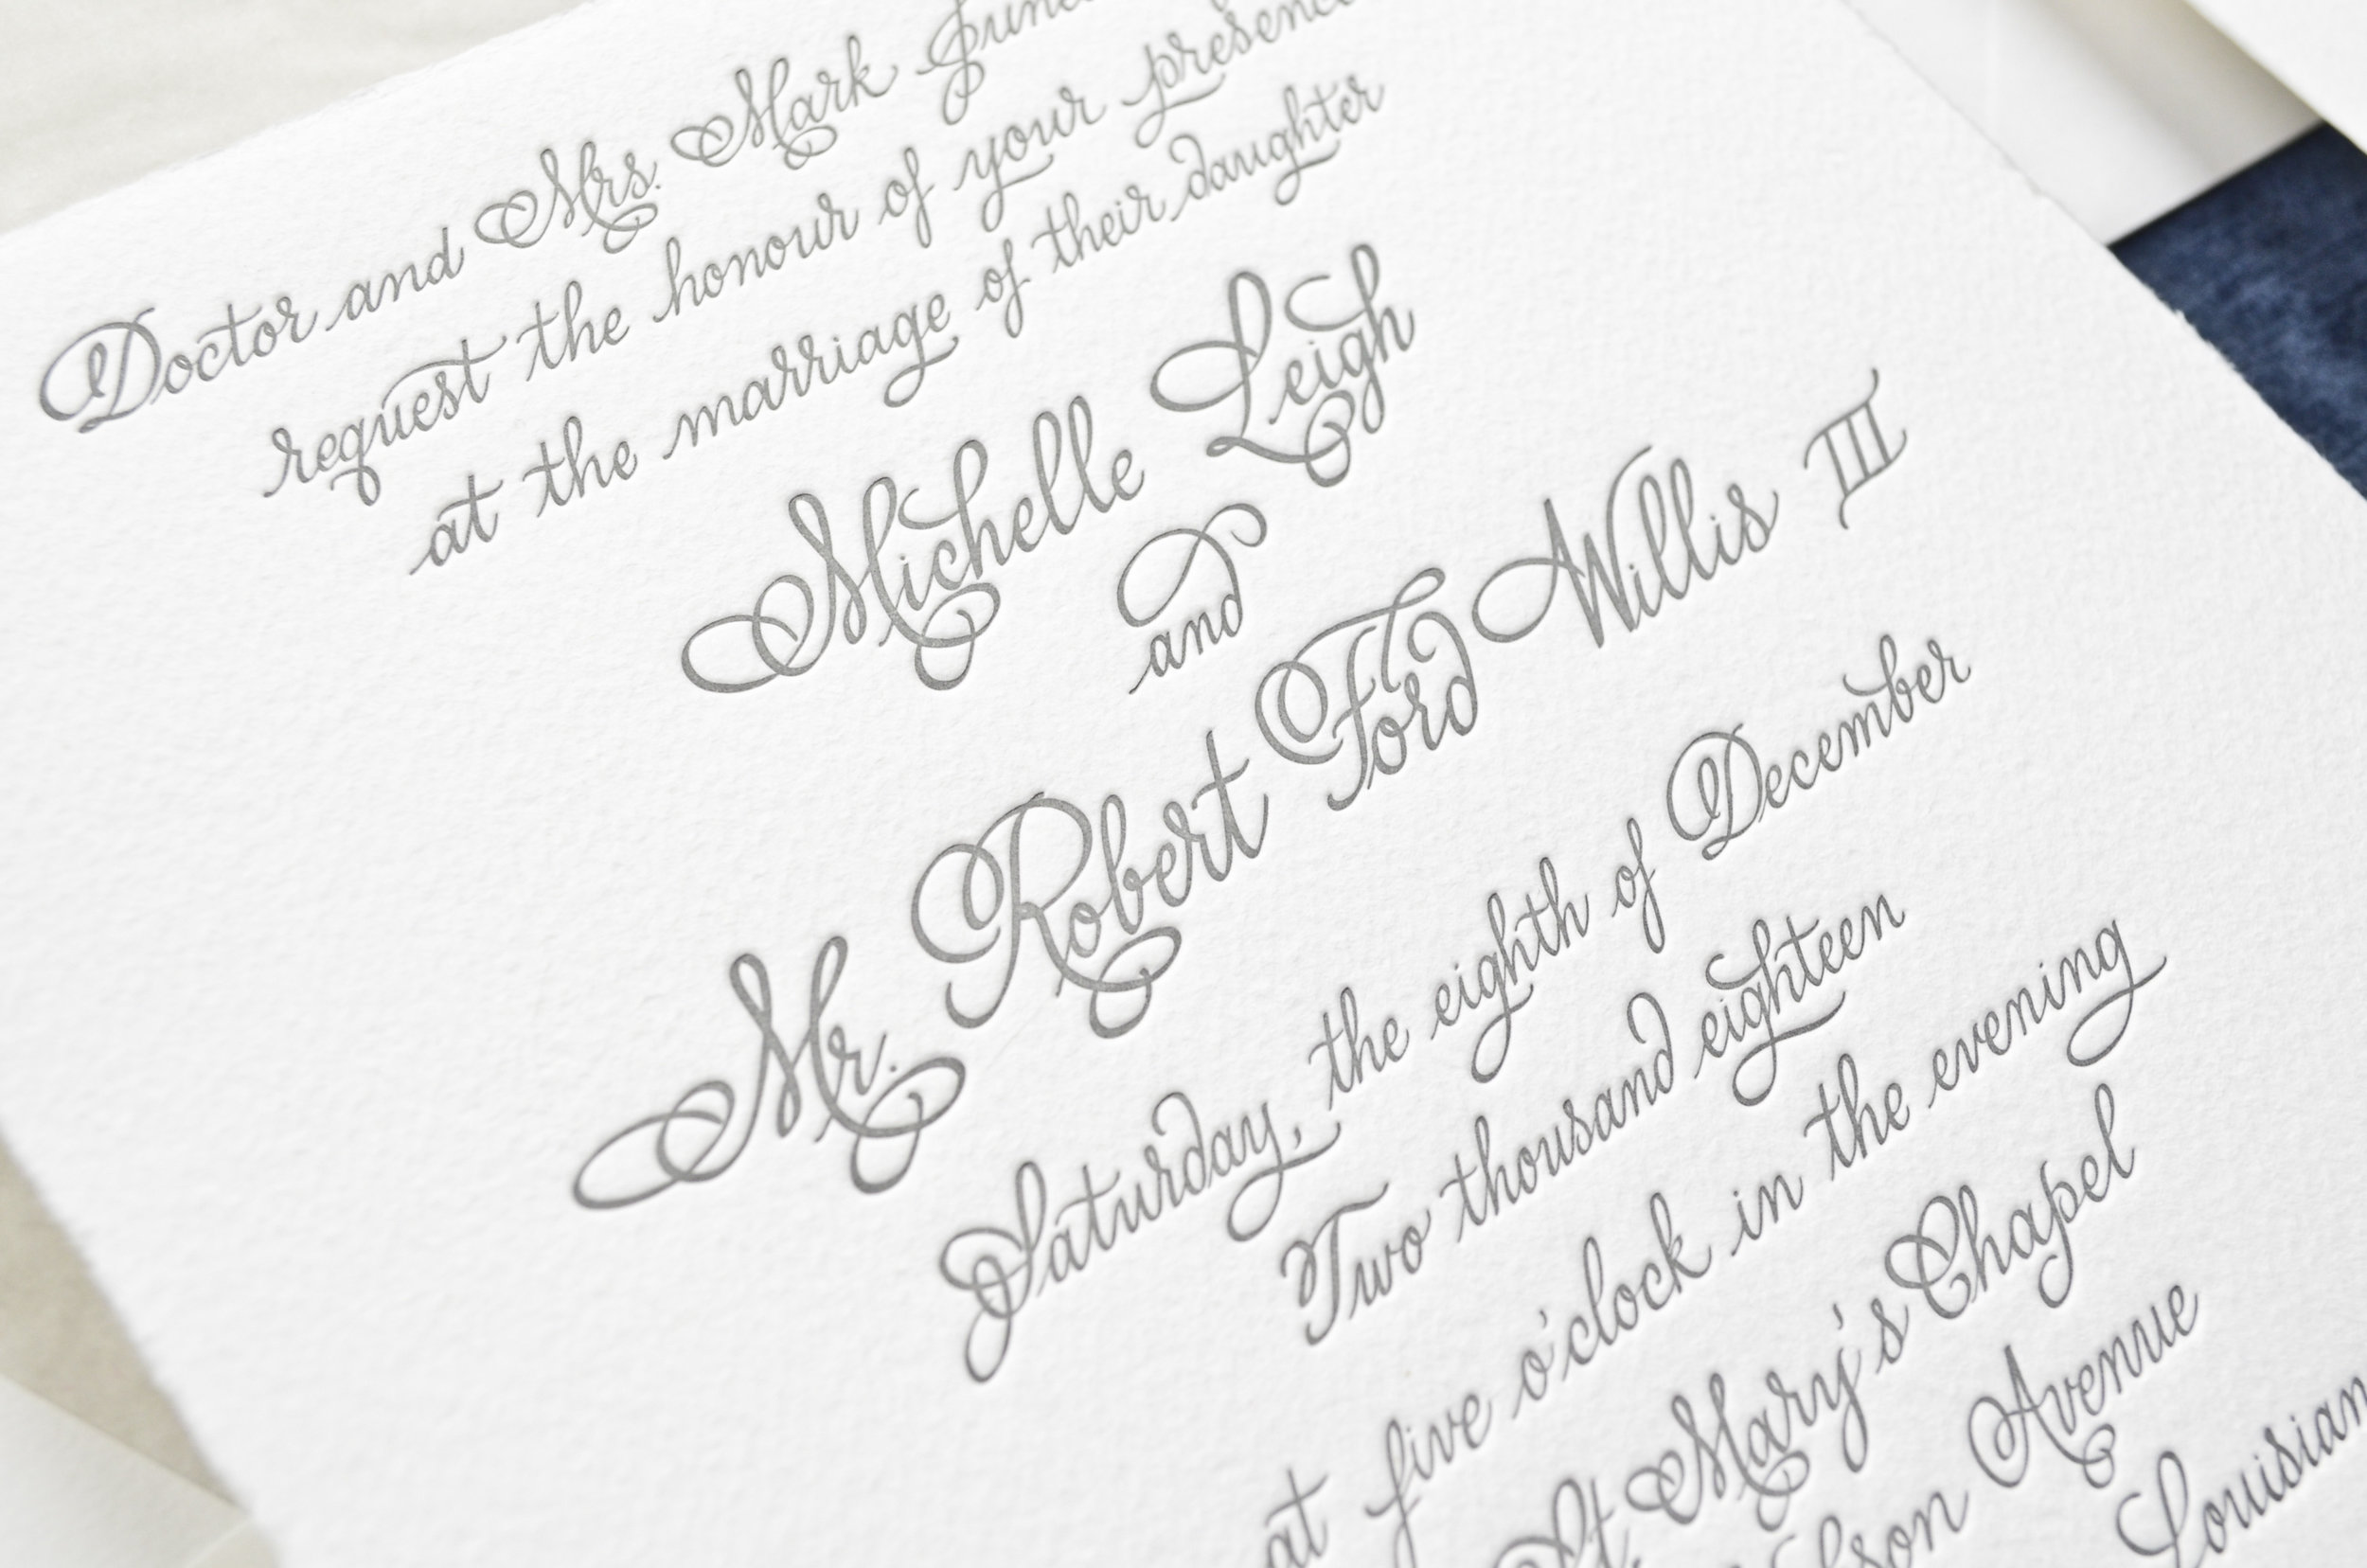 Doctor and Mrs. Mark
request the honour of your presence
at the marriage of their daughter
Michelle Leigh
and
Mr. Robert Ford Willis III
Saturday, the eighth of December
Two thousand eighteen
at five o'clock in the evening
St. Mary's Chapel
Avenue